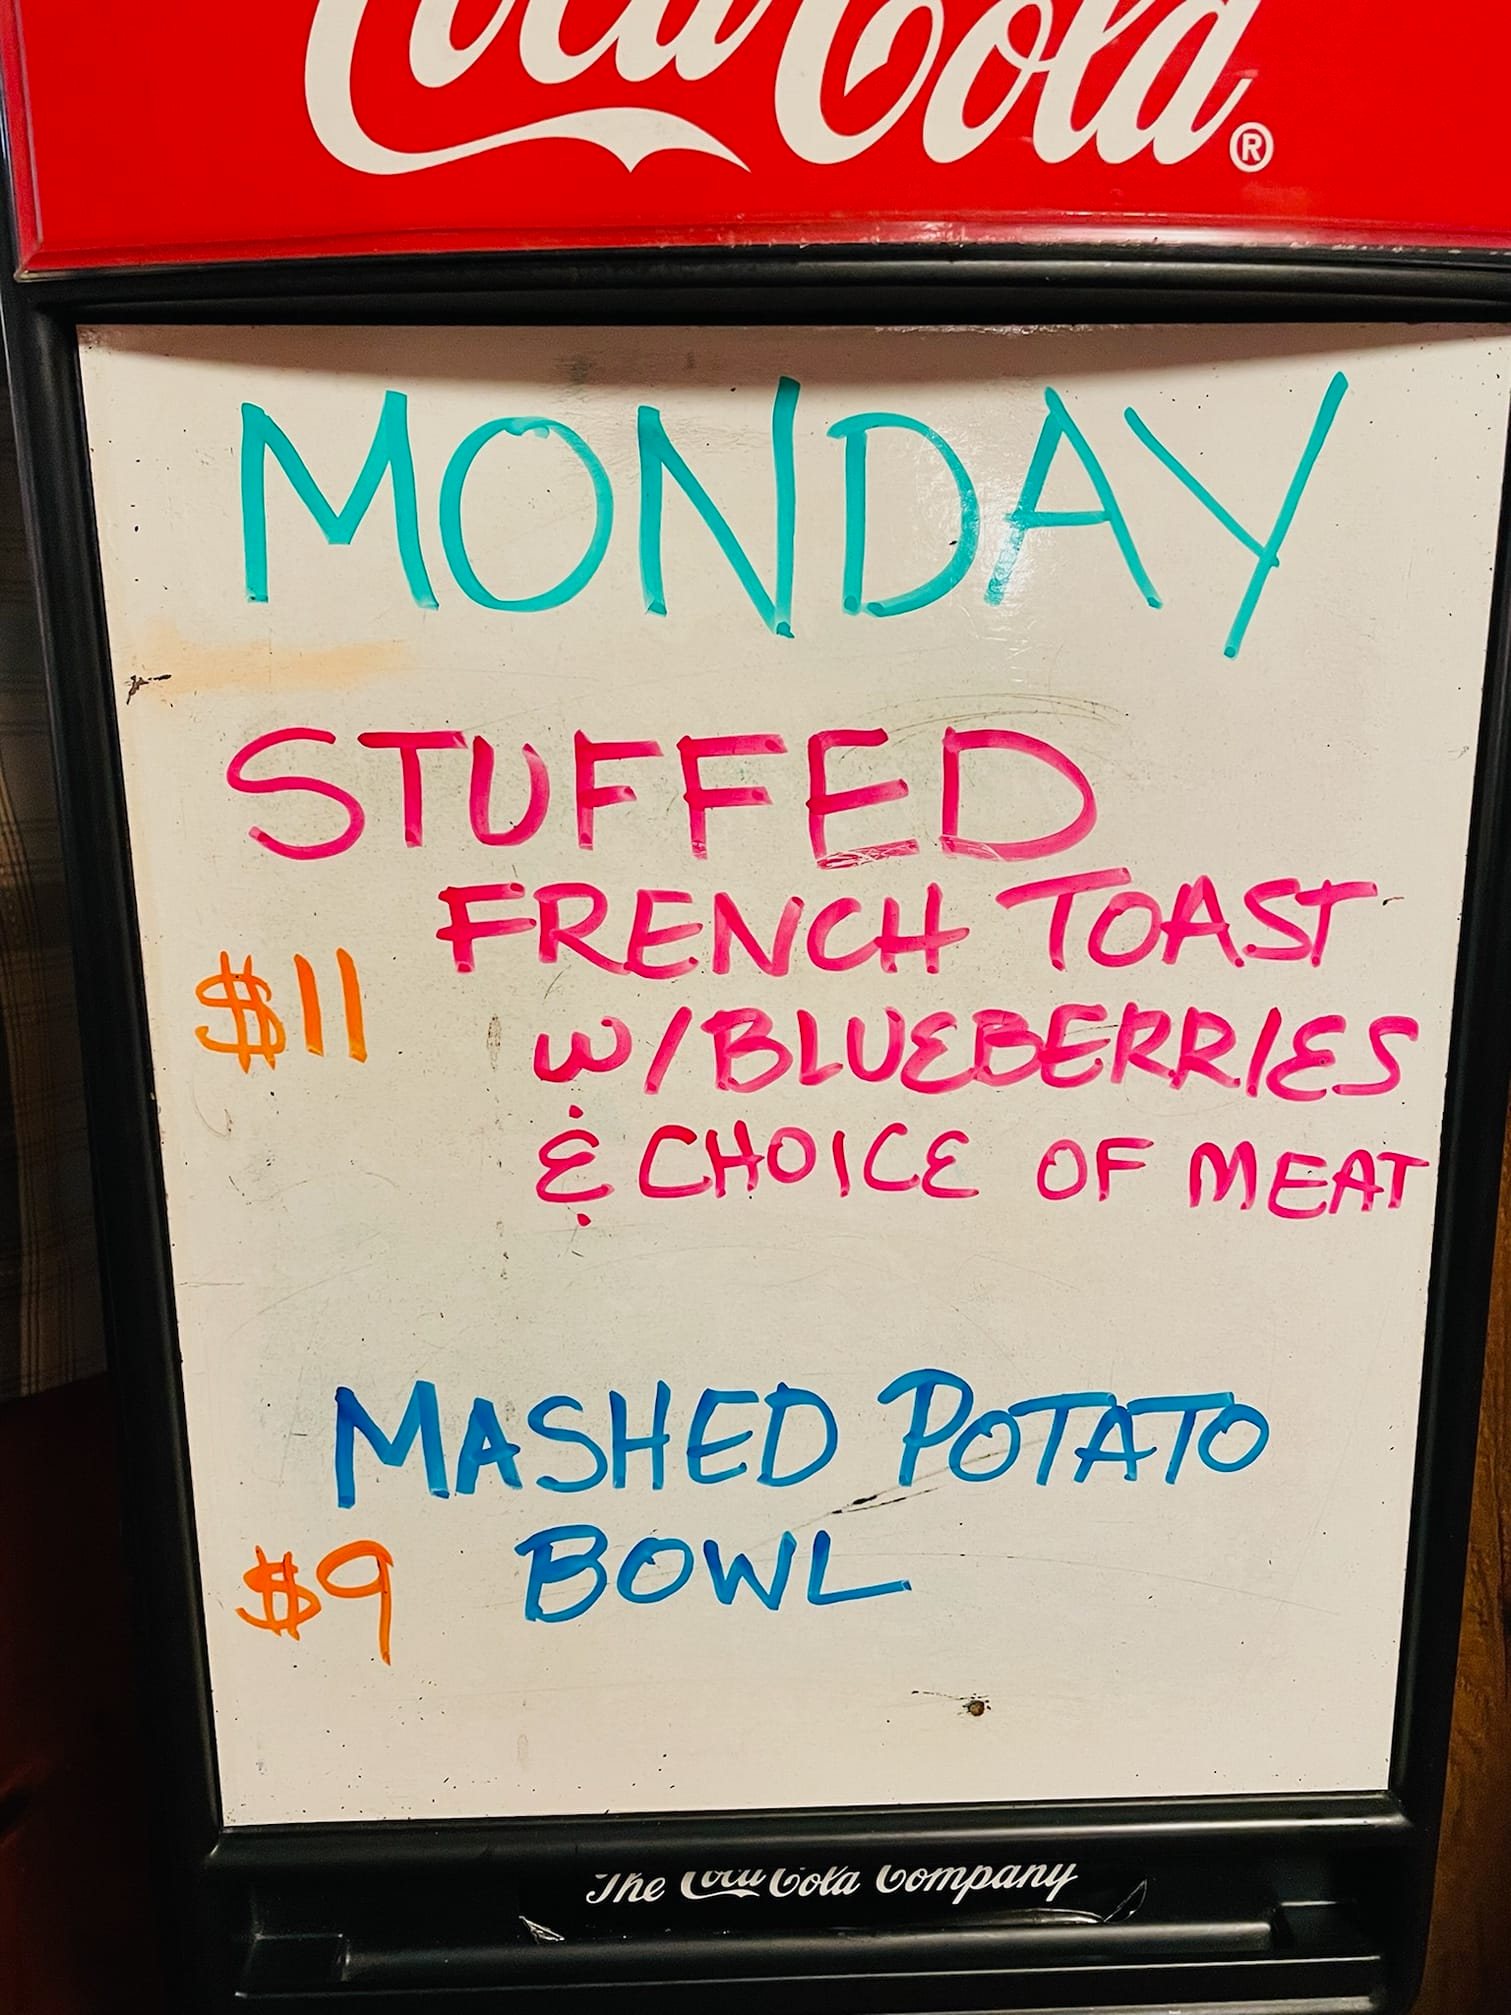 Coca-Cola®
MONDAY
STUFFED
FRENCH TOAST
$11
w/BLUEBERRIES
& CHOICE OF MEAT
MASHED POTATO
$9 BOWL
The Coca-Cola Company